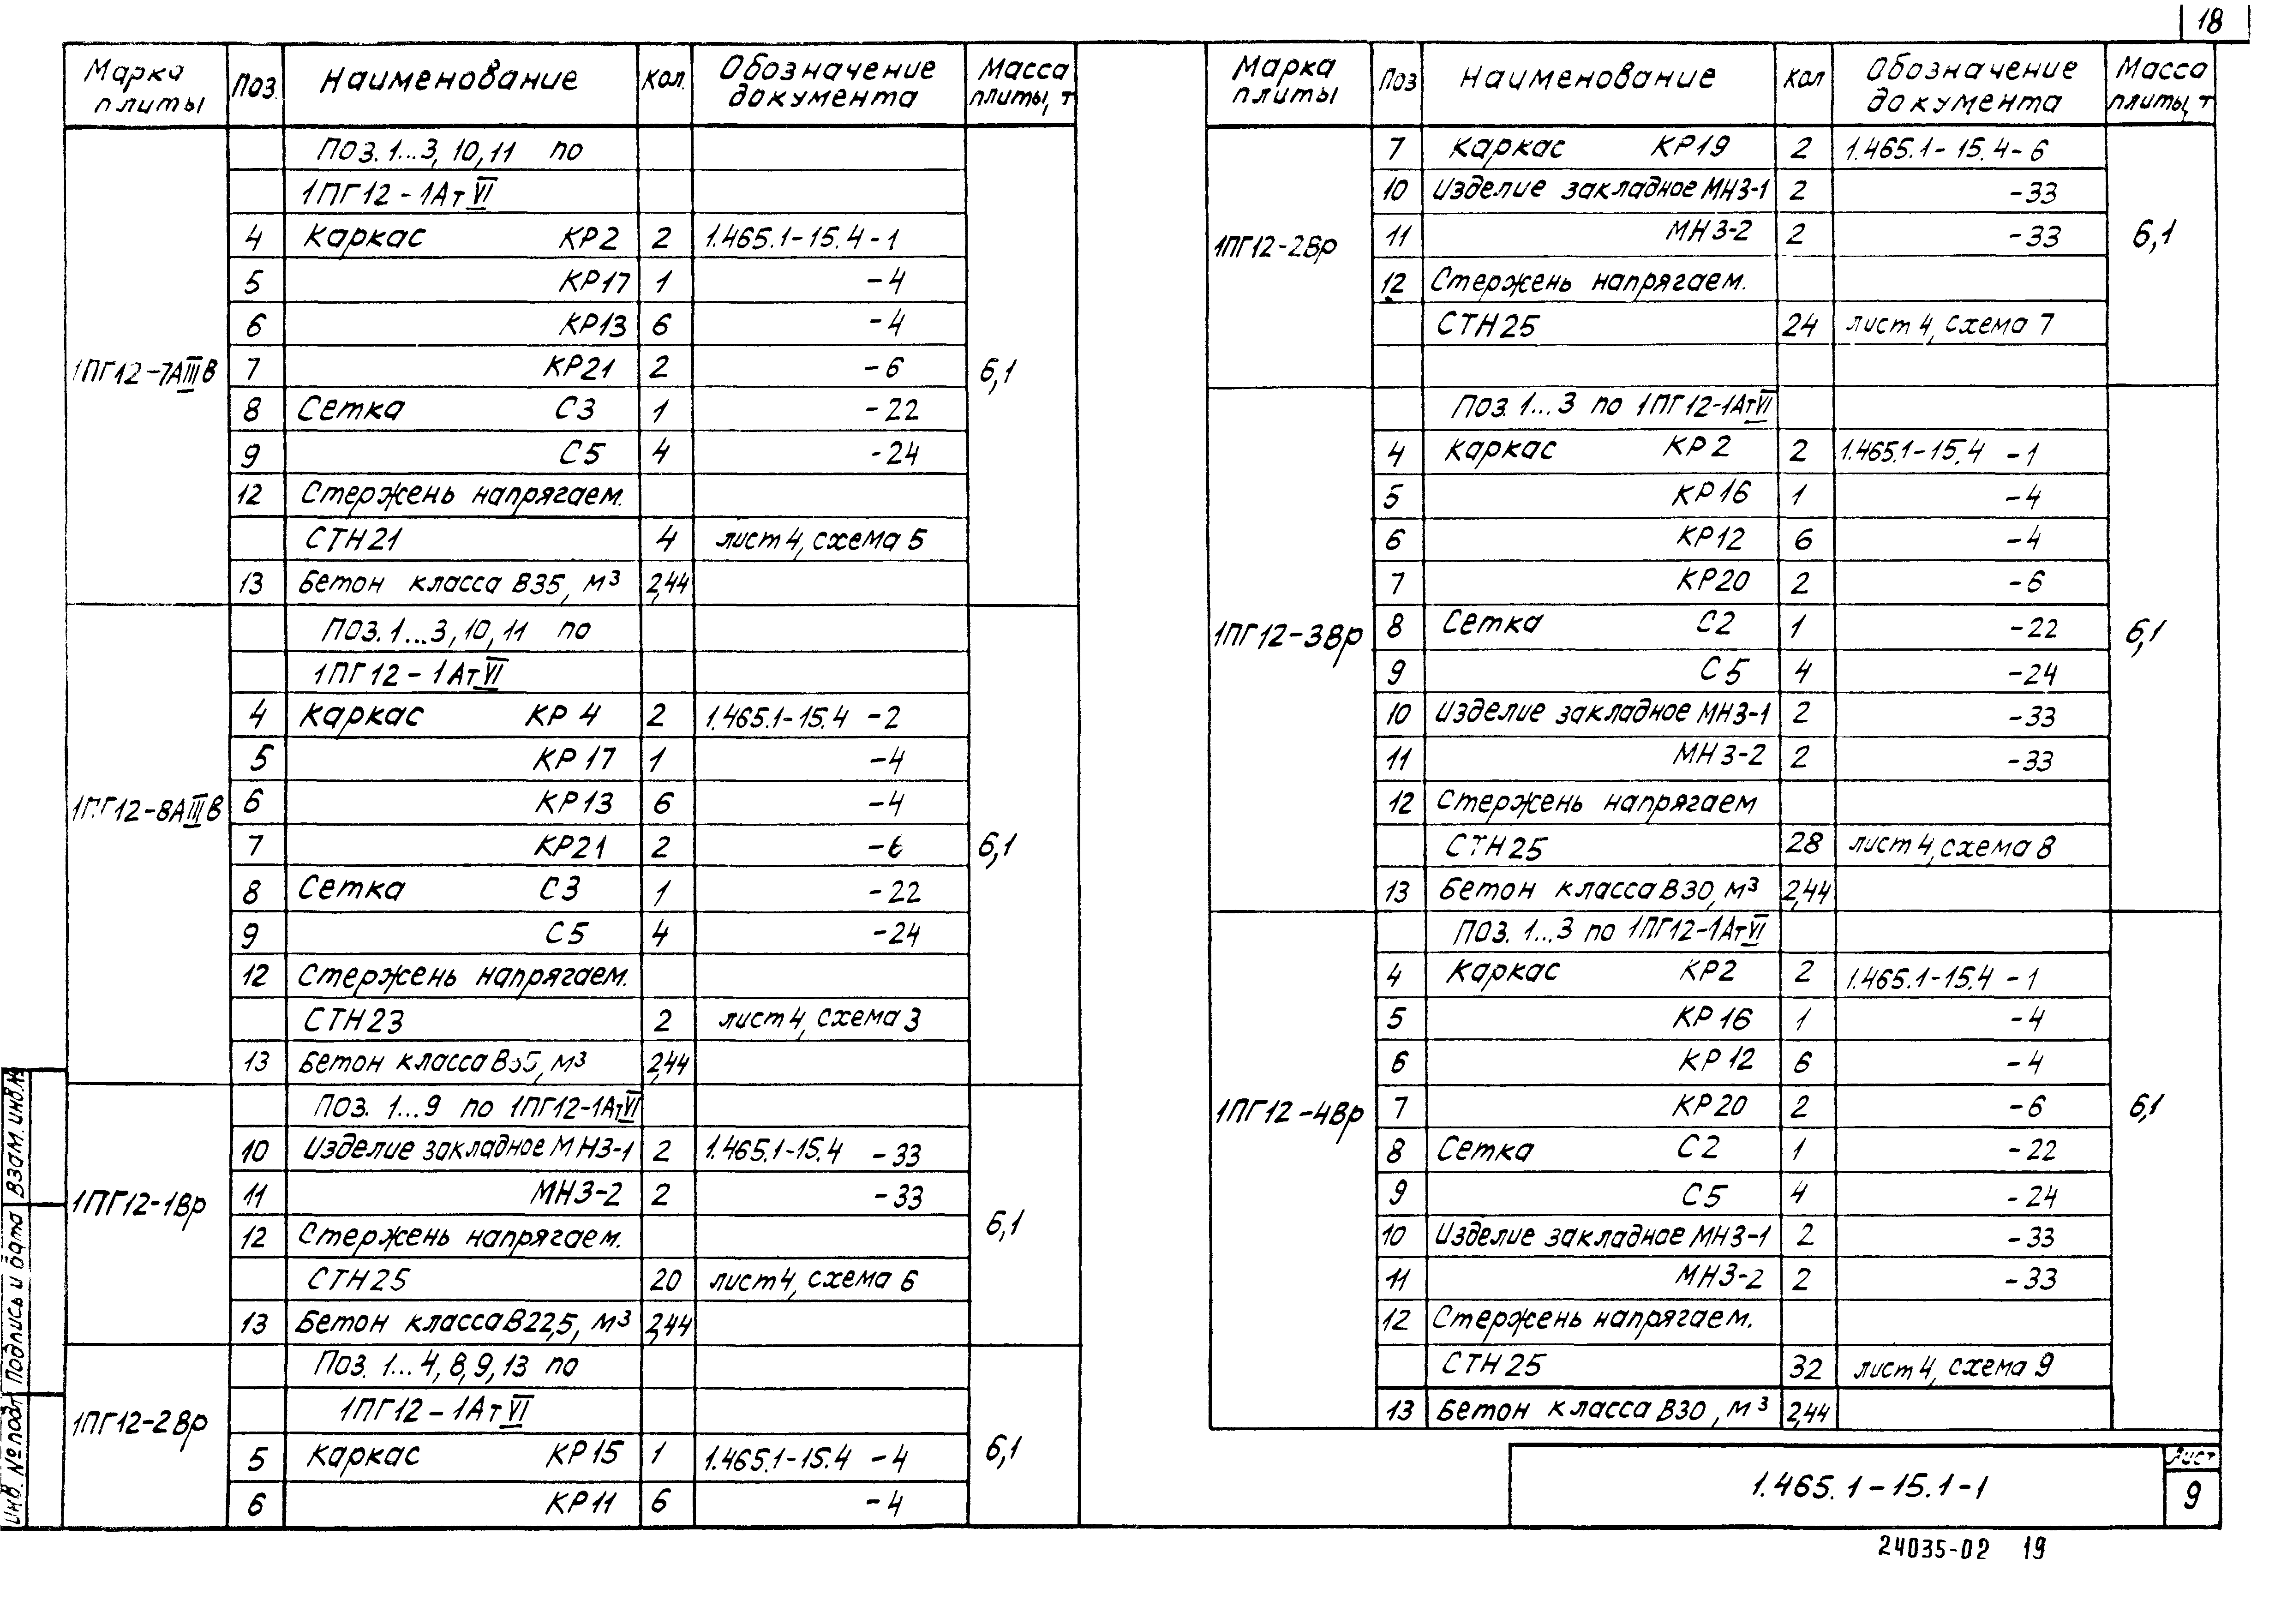 18
Марка плиты Поз. Наименование Кол. Обозначение документа Масса плиты, т
Поз. 1...3, 10, 11 по
1ПГ12-1АтVI
4 Каркас КР2 2 1.465.1-15.4-1
5 КР17 1 -4
6 КР13 6 -4
1ПГ12-7АIIIВ 7 КР21 2 -6 6,1
8 Сетка С3 1 -22
9 С5 4 -24
12 Стержень напрягаем.
СТН21 4 лист 4, схема 5
13 Бетон класса В35, м³ 2,44
Поз. 1...3, 10, 11 по
1ПГ12-1АтVI
4 Каркас КР4 2 1.465.1-15.4 -2
5 КР17 1 -4
1ПГ12-8АIIIВ 6 КР13 6 -4
7 КР21 2 -6 6,1
8 Сетка С3 1 -22
9 С5 4 -24
12 Стержень напрягаем.
СТН23 2 лист 4, схема 3
13 Бетон класса В35, м³ 2,44
Поз. 1...9 по 1ПГ12-1АтVI
10 Изделие закладное МН3-1 2 1.465.1-15.4 -33
1ПГ12-1Вр 11 МН3-2 2 -33 6,1
12 Стержень напрягаем.
СТН25 20 лист 4, схема 6
13 Бетон класса В22,5, м³ 2,44
Поз. 1...4, 8, 9, 13 по
1ПГ12-2Вр 1ПГ12-1АтVI
5 Каркас КР15 1 1.465.1-15.4 -4 6,1
6 КР11 6 -4
Марка плиты Поз Наименование Кол Обозначение документа Масса плиты, т
7 Каркас КР19 2 1.465.1-15.4-6
10 Изделие закладное МН3-1 2 -33
1ПГ12-2Вр 11 МН3-2 2 -33 6,1
12 Стержень напрягаем.
СТН25 24 лист 4, схема 7
Поз. 1...3 по 1ПГ12-1АтVI
4 Каркас КР2 2 1.465.1-15.4 -1
5 КР16 1 -4
6 КР12 6 -4
7 КР20 2 -6
1ПГ12-3Вр 8 Сетка С2 1 -22 6,1
9 С5 4 -24
10 Изделие закладное МН3-1 2 -33
11 МН3-2 2 -33
12 Стержень напрягаем
СТН25 28 лист 4, схема 8
13 Бетон класса В30, м³ 2,44
Поз. 1...3 по 1ПГ12-1АтVI
4 Каркас КР2 2 1.465.1-15.4 -1
5 КР16 1 -4
6 КР12 6 -4
1ПГ12-4Вр 7 КР20 2 -6 6,1
8 Сетка С2 1 -22
9 С5 4 -24
10 Изделие закладное МН3-1 2 -33
11 МН3-2 2 -33
12 Стержень напрягаем.
СТН25 32 лист 4, схема 9
13 Бетон класса В30, м³ 2,44
Инв. № подл Подпись и дата Взам. инв. №
1.465.1-15.1-1
Лист
9
24035-02 19